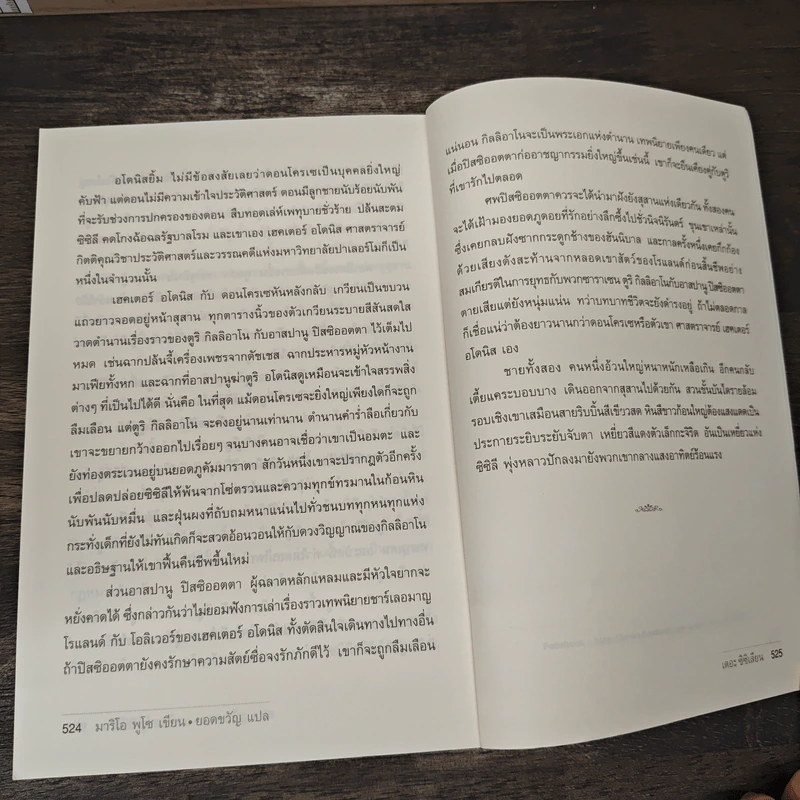 อโดนิสยิ้ม ไม่มีข้อสงสัยเลยว่าดอนโครเซเป็นบุคคลยิ่งใหญ่
คับฟ้า แต่ดอนไม่มีความเข้าใจประวัติศาสตร์ ดอนมีลูกชายนับร้อยนับพัน
ที่จะรับช่วงการปกครองของดอน สืบทอดเล่ห์เพทุบายชั่วร้าย ปล้นสะดม
ซิซิลี คดโกงฉ้อฉลรัฐบาลโรม และเขาเอง เฮคเตอร์ อโดนิส ศาสตราจารย์
กิตติคุณวิชาประวัติศาสตร์และวรรณคดีแห่งมหาวิทยาลัยปาเลอร์โมก็เป็น
หนึ่งในจำนวนนั้น
เฮคเตอร์ อโดนิส กับ ดอนโครเซหันหลังกลับ เกวียนเป็นขบวน
แถวยาวจอดอยู่หน้าสุสาน ทุกตารางนิ้วของตัวเกวียนระบายสีสันสดใส
วาดตำนานเรื่องราวของตูริ กิลลิอาโน กับอาสปานู ปิสซิออตตา ไว้เต็มไป
หมด เช่นฉากปล้นจี้เครื่องเพชรจากดัชเชส ฉากประหารหมู่หัวหน้างาน
มาเฟียทั้งหก และฉากที่อาสปานูฆ่าตูริ อโดนิสดูเหมือนจะเข้าใจสรรพสิ่ง
ต่างๆ ที่เป็นไปได้ดี นั่นคือ ในที่สุด แม้ดอนโครเซจะยิ่งใหญ่เพียงใดก็จะถูก
ลืมเลือน แต่ตูริ กิลลิอาโน จะคงอยู่นานเท่านาน ตำนานคำร่ำลือเกี่ยวกับ
เขาจะขยายกว้างออกไปเรื่อยๆ จนบางคนอาจเชื่อว่าเขาเป็นอมตะ และ
ยังท่องตระเวนอยู่บนยอดภูคัมมาราตา สักวันหนึ่งเขาจะปรากฏตัวอีกครั้ง
เพื่อปลดปล่อยซิซิลีให้พ้นจากโซ่ตรวนและความทุกข์ทรมานในก้อนหิน
นับพันนับหมื่น และฝุ่นผงที่ถับถมหนาแน่นไปทั่วชนบททุกหนทุกแห่ง
กระทั่งเด็กที่ยังไม่ทันเกิดก็จะสวดอ้อนวอนให้กับดวงวิญญาณของกิลลิอาโน
และอธิษฐานให้เขาฟื้นคืนชีพขึ้นใหม่
ส่วนอาสปานู ปิสซิออตตา ผู้ฉลาดหลักแหลมและมีหัวใจยากจะ
หยั่งคาดได้ ซึ่งกล่าวกันว่าไม่ยอมฟังการเล่าเรื่องราวเทพนิยายชาร์เลอมาญ
โรแลนด์ กับ โอลิเวอร์ของเฮคเตอร์ อโดนิส ทั้งตัดสินใจเดินทางไปทางอื่น
ถ้าปิสซิออตตายังคงรักษาความสัตย์ซื่อจงรักภักดีไว้ เขาก็จะถูกลืมเลือน
524 มาริโอ พูโซ เขียน • ยอดขวัญ แปล
แน่นอน กิลลิอาโนจะเป็นพระเอกแห่งตำนาน เทพนิยายเพียงคนเดียว แต่
เมื่อปิสซิออตตาก่ออาชญากรรมยิ่งใหญ่ขึ้นเช่นนี้ เขาก็จะยืนเคียงคู่กับตูริ
ที่เขารักไปตลอด
ศพปิสซิออตตาควรจะได้นำมาฝังยังสุสานแห่งเดียวกัน ทั้งสองคน
จะได้เฝ้ามองยอดภูดอยที่รักอย่างลึกซึ้งไปชั่วนิจนิรันดร์ ขุนเขาเหล่านั้น
ซึ่งเคยกลบฝังซากกระดูกช้างของฮันนิบาล และกาลครั้งหนึ่งเคยกึกก้อง
ด้วยเสียงดังสะท้านจากหลอดเขาสัตว์ของโรแลนด์ก่อนสิ้นชีพอย่าง
สมเกียรติในการยุทธกับพวกซาราเซน ตูริ กิลลิอาโนกับอาสปานู ปิสซิออตตา
ตายเสียแต่ยังหนุ่มแน่น ทว่าบทบาทชีวิตจะยังดำรงอยู่ ถ้าไม่ตลอดกาล
ก็เชื่อแน่ว่าต้องยาวนานกว่าดอนโครเซหรือตัวเขา ศาสตราจารย์ เฮคเตอร์
อโดนิส เอง
ชายทั้งสอง คนหนึ่งอ้วนใหญ่หนาหนักเหลือเกิน อีกคนกลับ
เตี้ยแคระบอบบาง เดินออกจากสุสานไปด้วยกัน สวนขั้นบันไดรายล้อม
รอบเชิงเขาเสมือนสายริบบิ้นสีเขียวสด หินสีขาวก้อนใหญ่ต้องแสงแดดเป็น
ประกายระยิบระยับจับตา เหยี่ยวสีแดงตัวเล็กกะจิริด อันเป็นเหยี่ยวแห่ง
ซิซิลี พุ่งหลาวปักลงมายังพวกเขากลางแสงอาทิตย์ร้อนแรง
เดอะ ซิซิเลียน 525